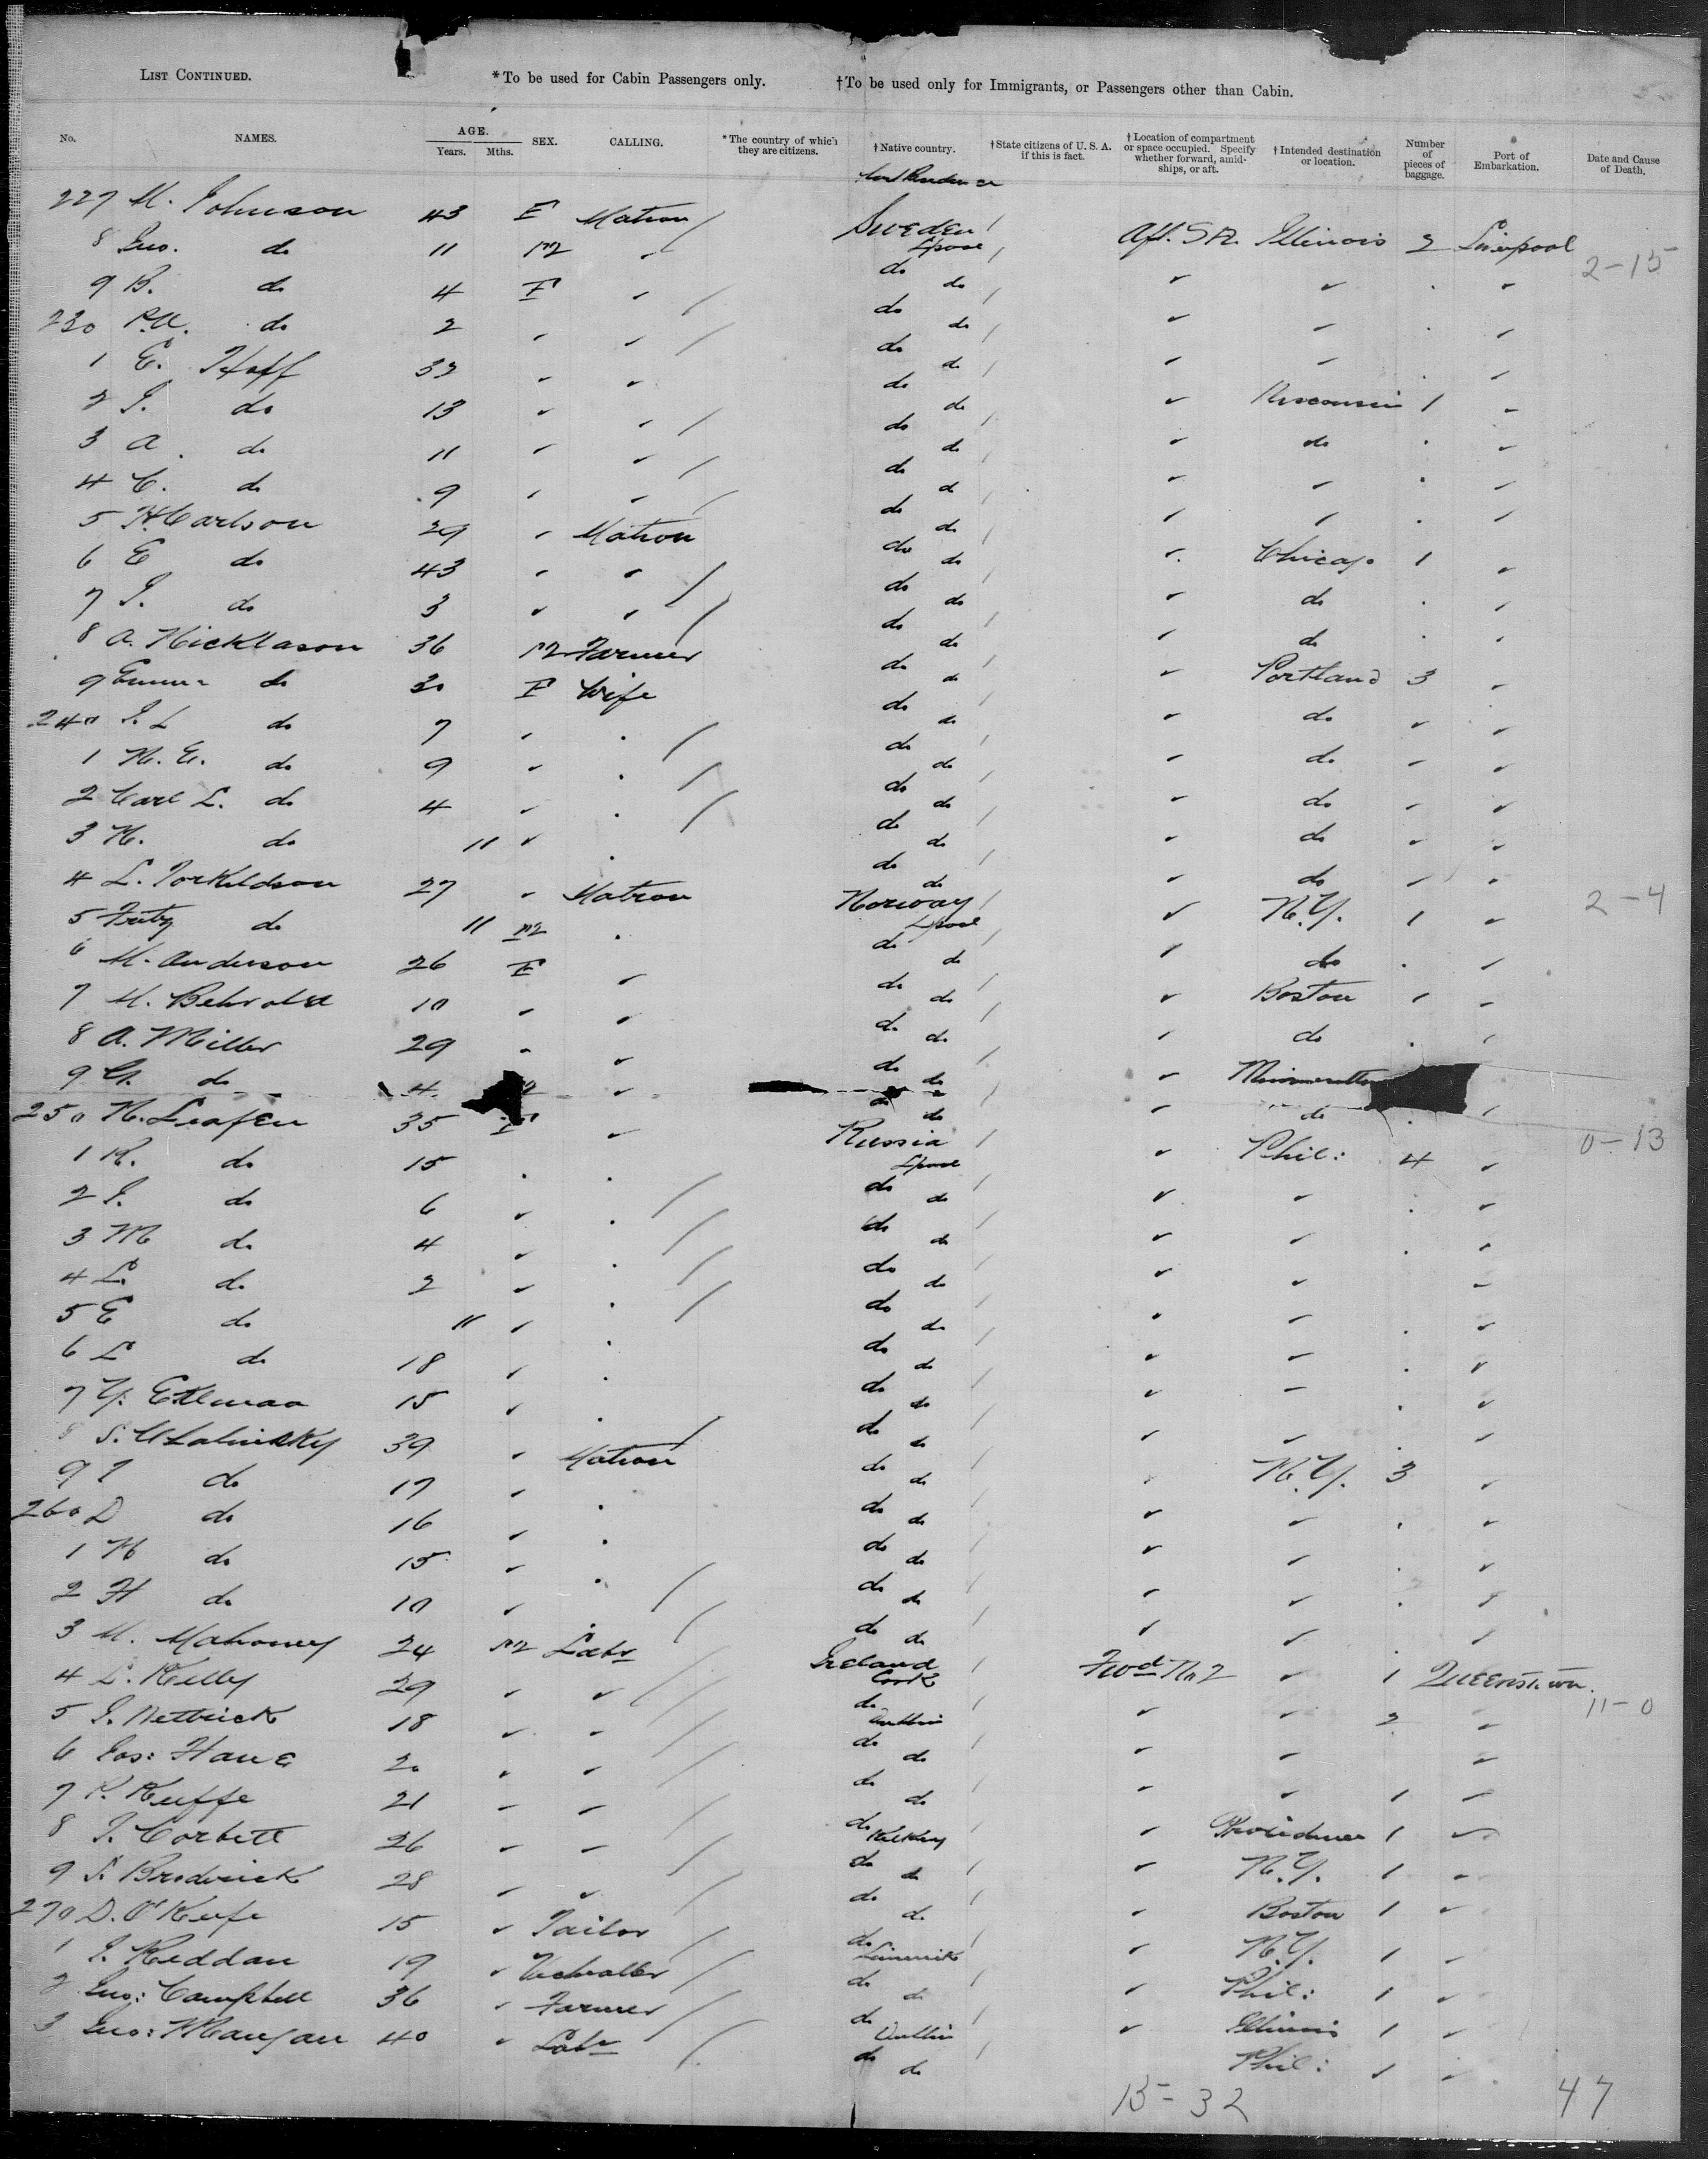 LIST CONTINUED. *To be used for Cabin Passengers only. †To be used only for Immigrants, or Passengers other than Cabin.
No. NAMES. AGE. Years. Mths. SEX. CALLING. *The country of which they are citizens. †Native country. †State citizens of U. S. A. if this is fact. †Location of compartment or space occupied. Specify whether forward, amidships, or aft. †Intended destination or location. Number of pieces of baggage. Port of Embarkation. Date and Cause of Death.
227 M. Johnson 43 F Matron Sweden Lpool Aft. SR. Illinois 2 Liverpool 2-15
8 Jno. do 11 M do do
9 B. do 4 F do do
230 P.A. do 2 do do
1 E. Hoff 33 do do Wisconsin 1
2 I. do 13 do do do
3 A. do 11 do do
4 C. do 9 do do
5 H. Carlson 29 Matron do do Chicago 1
6 E do 43 do do do
7 I. do 3 do do do
8 A. Nicklason 36 M Farmer do do Portland 3
9 Emma do 30 F Wife do do do
240 I. L do 7 do do do
1 H. E. do 9 do do do
2 Carl L. do 4 do do do
3 H. do 11 do do do
4 L. Torkildson 27 Matron Norway Lpool N.Y. 1 2-4
5 Fritz do 11 M do do do
6 M. Anderson 26 F do do Boston 1
7 M. 10 do do do
8 A. Miller 29 do do
9 do 4 do do do
250 H. Leafen 35 F Russia Lpool Phil: 4 0-13
1 R. do 15 do do
2 I. do 6 do do
3 M do 4 do do
4 L. do 2 do do
5 E do 11 do do
6 L do 18 do do
7 Y. 15 do do
8 S. 39 Matron do do N.Y. 3
9 I do 17 do do
260 D do 16 do do
1 H do 15 do do
2 H do 10 do do
3 M. Mahoney 24 M Labr Ireland Cork Fwd No 2 1 Queenstown. 11-0
4 L. Kelly 29 do Dublin 2
5 I. 18 do do
6 Jos: Hane 20 do do 1
7 21 do Kilkeny Providence 1
8 J. Corbett 26 do do N.Y. 1
9 Broderick 28 do do Boston 1
270 D. O'Keefe 15 Tailor do Limerick N.Y. 1
1 J. Reddan 19 do do Phil: 1
2 Jno: Campbell 36 Farmer do Dublin Illinois 1
3 Jno: Mangan 40 Labr do do Phil: 1
15-32 47